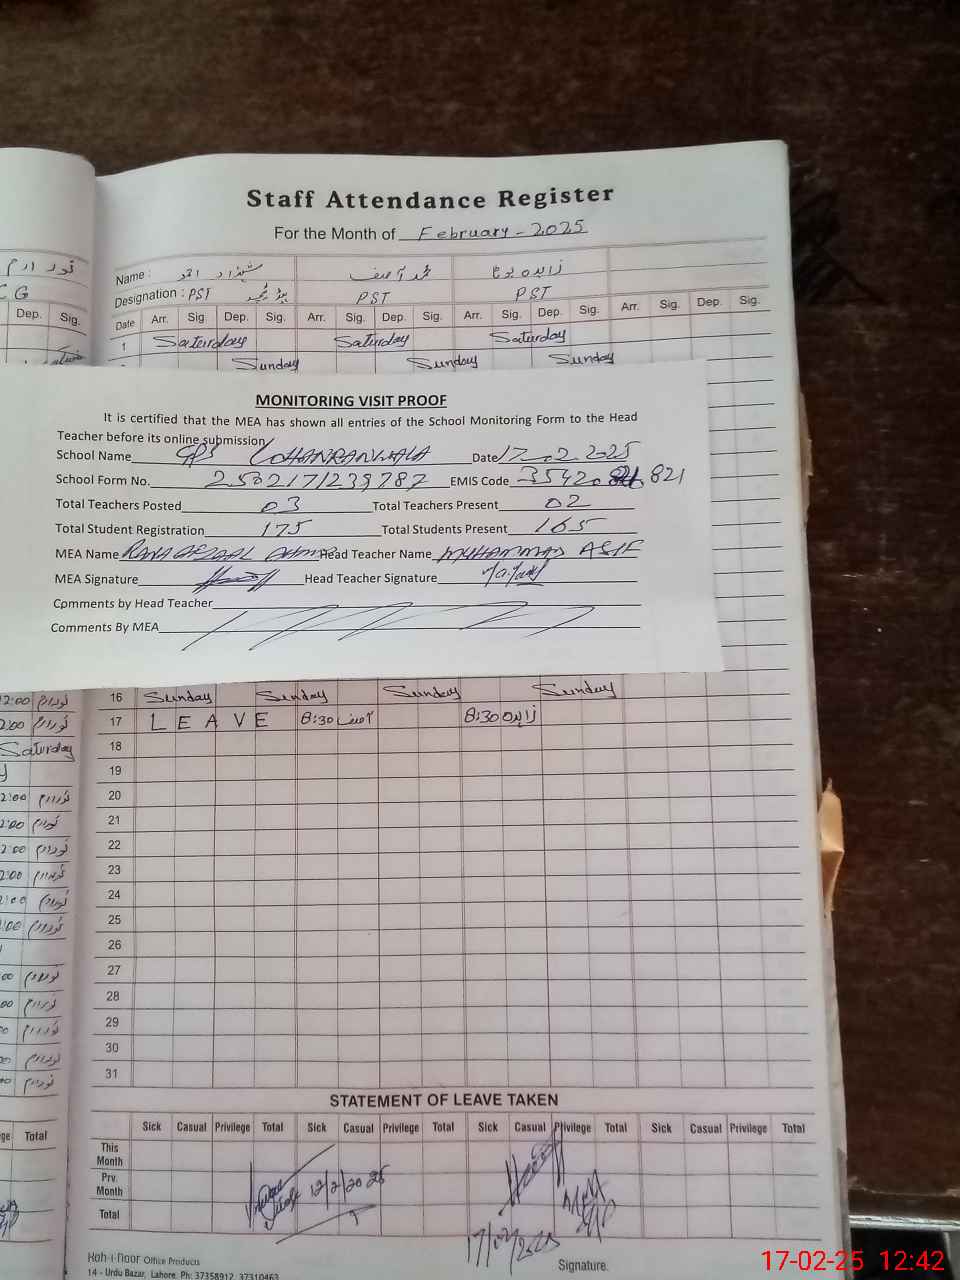 Staff Attendance Register
For the Month of February - 2025
Name : شہزاد احمد محمد آصف زاہدہ
Designation : PST PST PST
Date Arr. Sig. Dep. Sig. Arr. Sig. Dep. Sig. Arr. Sig. Dep. Sig. Arr. Sig. Dep. Sig.
1 Saturday Saturday Saturday
Sunday Sunday Sunday
MONITORING VISIT PROOF
It is certified that the MEA has shown all entries of the School Monitoring Form to the Head
Teacher before its online submission
School Name GPS Date 17-02-2025
School Form No. 250217/239787 EMIS Code 35420 821
Total Teachers Posted 03 Total Teachers Present 02
Total Student Registration 175 Total Students Present 165
MEA Name RANA AFZAAL AHMAD Head Teacher Name MUHAMMAD ASIF
MEA Signature Head Teacher Signature
Comments by Head Teacher
Comments By MEA
16 Sunday Sunday Sunday Sunday
17 LEAVE 8:30 آصف 8:30 زاہدہ
18
19
20
21
22
23
24
25
26
27
28
29
30
31
STATEMENT OF LEAVE TAKEN
Sick Casual Privilege Total Sick Casual Privilege Total Sick Casual Privilege Total Sick Casual Privilege Total
This Month
Prv. Month
Total
12/2/2025
17/02/2025
MEA
Signature.
Koh-i-noor Office Products
14 - Urdu Bazar, Lahore. Ph: 37358912, 37310463
CG
Dep. Sig.
12:00
2:00
Saturday
2:00
2:00
2:00
2:00
1:00
1:00
00
00
Total
17-02-25 12:42